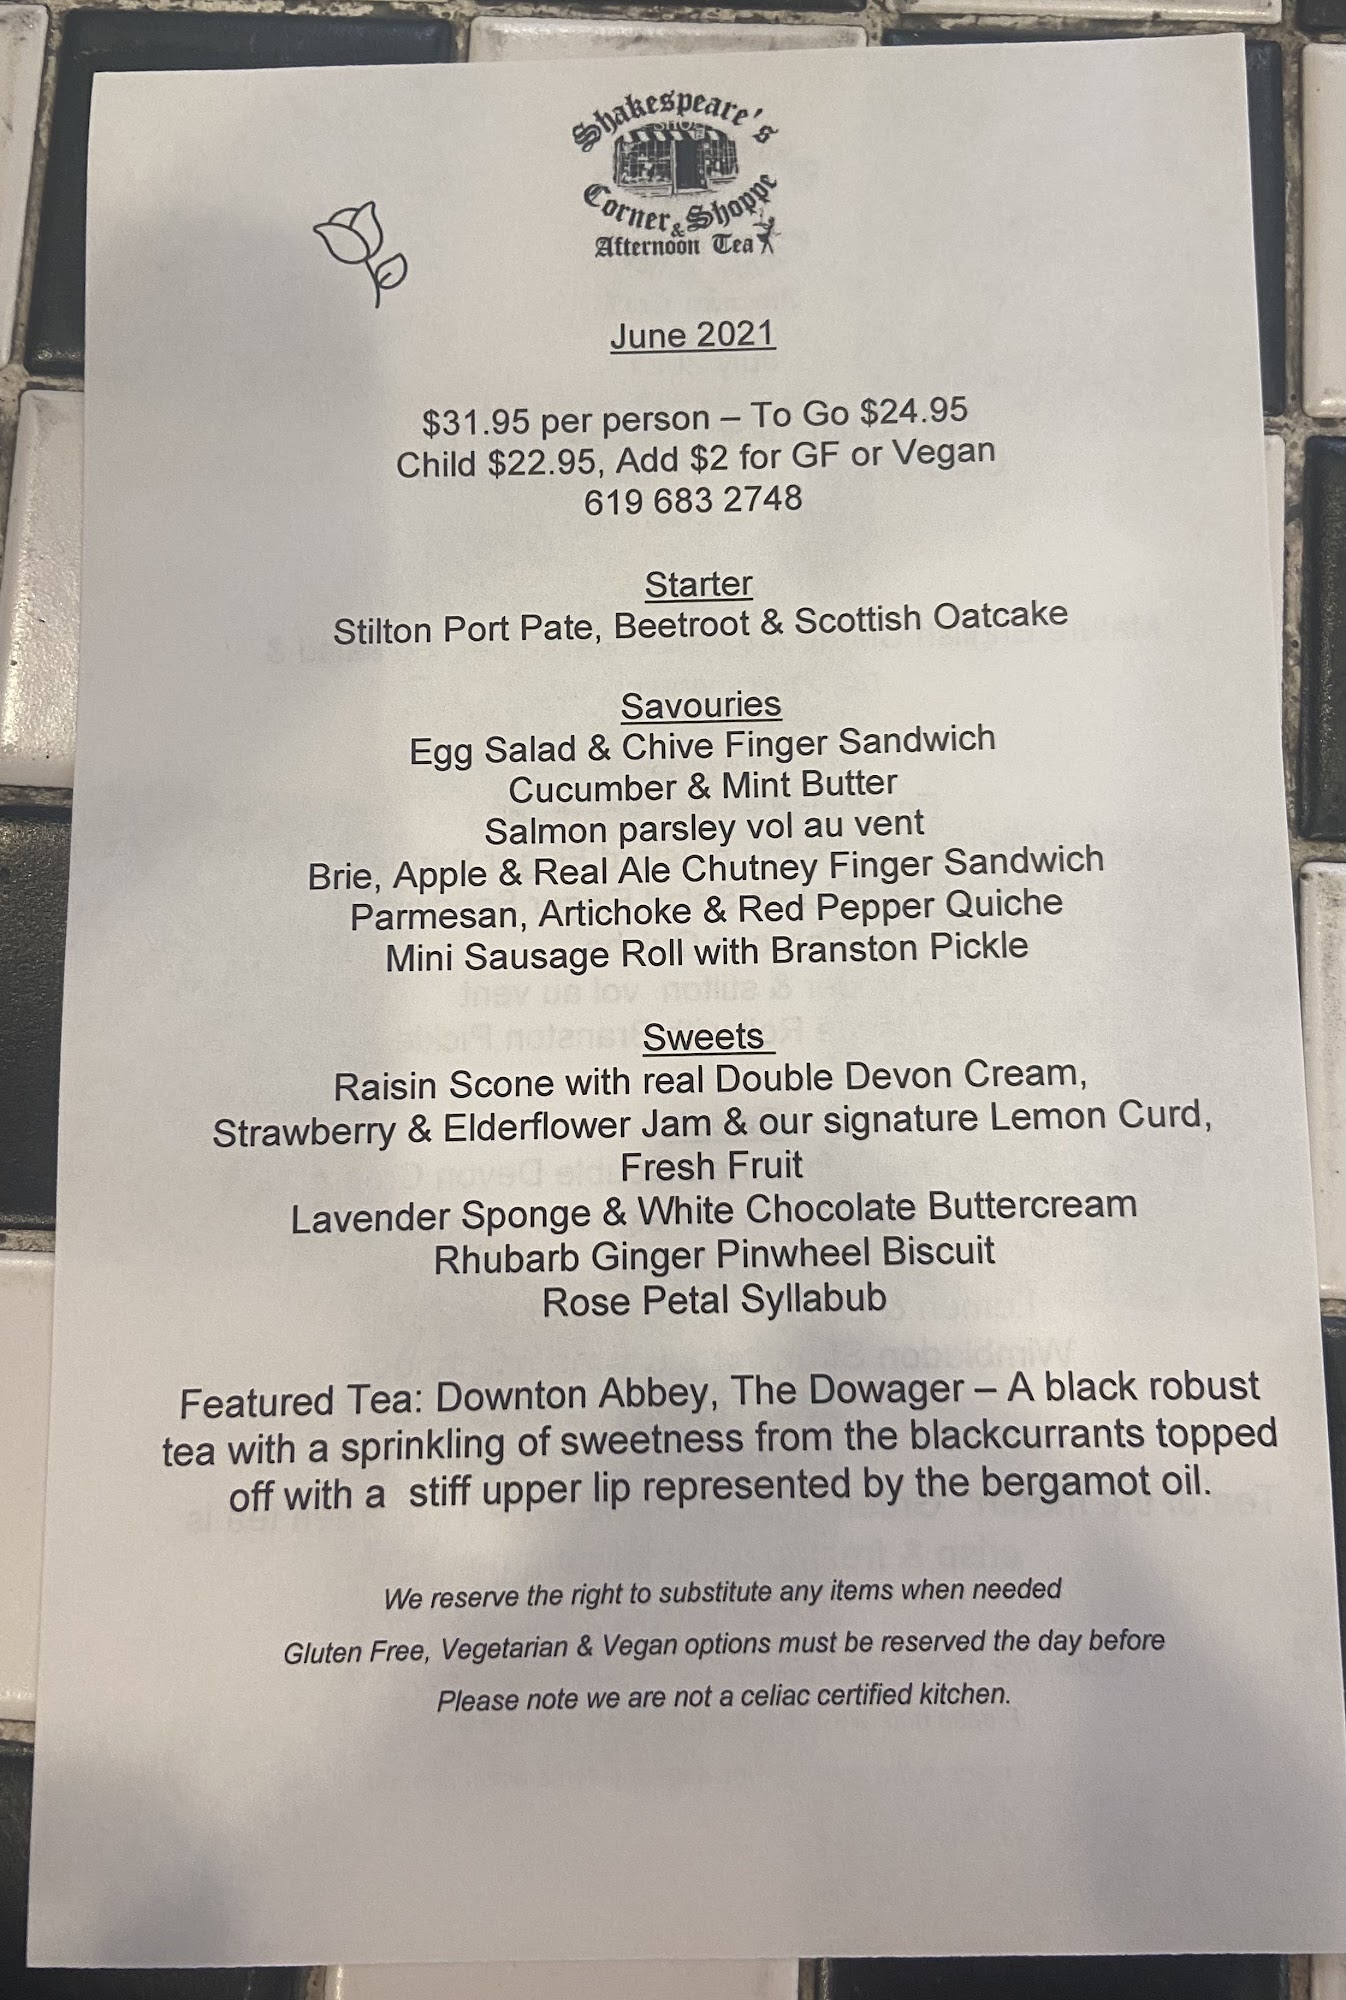 Shakespeare's
SHOP
Corner & Shoppe
Afternoon Tea
June 2021
$31.95 per person – To Go $24.95
Child $22.95, Add $2 for GF or Vegan
619 683 2748
Starter
Stilton Port Pate, Beetroot & Scottish Oatcake
Savouries
Egg Salad & Chive Finger Sandwich
Cucumber & Mint Butter
Salmon parsley vol au vent
Brie, Apple & Real Ale Chutney Finger Sandwich
Parmesan, Artichoke & Red Pepper Quiche
Mini Sausage Roll with Branston Pickle
Sweets
Raisin Scone with real Double Devon Cream,
Strawberry & Elderflower Jam & our signature Lemon Curd,
Fresh Fruit
Lavender Sponge & White Chocolate Buttercream
Rhubarb Ginger Pinwheel Biscuit
Rose Petal Syllabub
Featured Tea: Downton Abbey, The Dowager – A black robust
tea with a sprinkling of sweetness from the blackcurrants topped
off with a stiff upper lip represented by the bergamot oil.
We reserve the right to substitute any items when needed
Gluten Free, Vegetarian & Vegan options must be reserved the day before
Please note we are not a celiac certified kitchen.